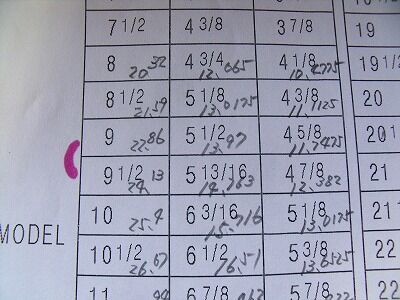 7 1/2 4 3/8 3 7/8 19
8 20.32 4 3/4 12.065 4 1/8 10.4775 19 1/2
8 1/2 21.59 5 1/8 13.0175 4 3/8 11.1125 20
9 22.86 5 1/2 13.97 4 5/8 11.7475 20 1
9 1/2 24.13 5 13/16 14.763 4 7/8 12.382 21
10 25.4 6 3/16 15.716 5 1/8 13.0175 21 1
MODEL 10 1/2 26.67 6 1/2 16.51 5 3/8 13.6525 22
11 6 7/8 5 5/8 22